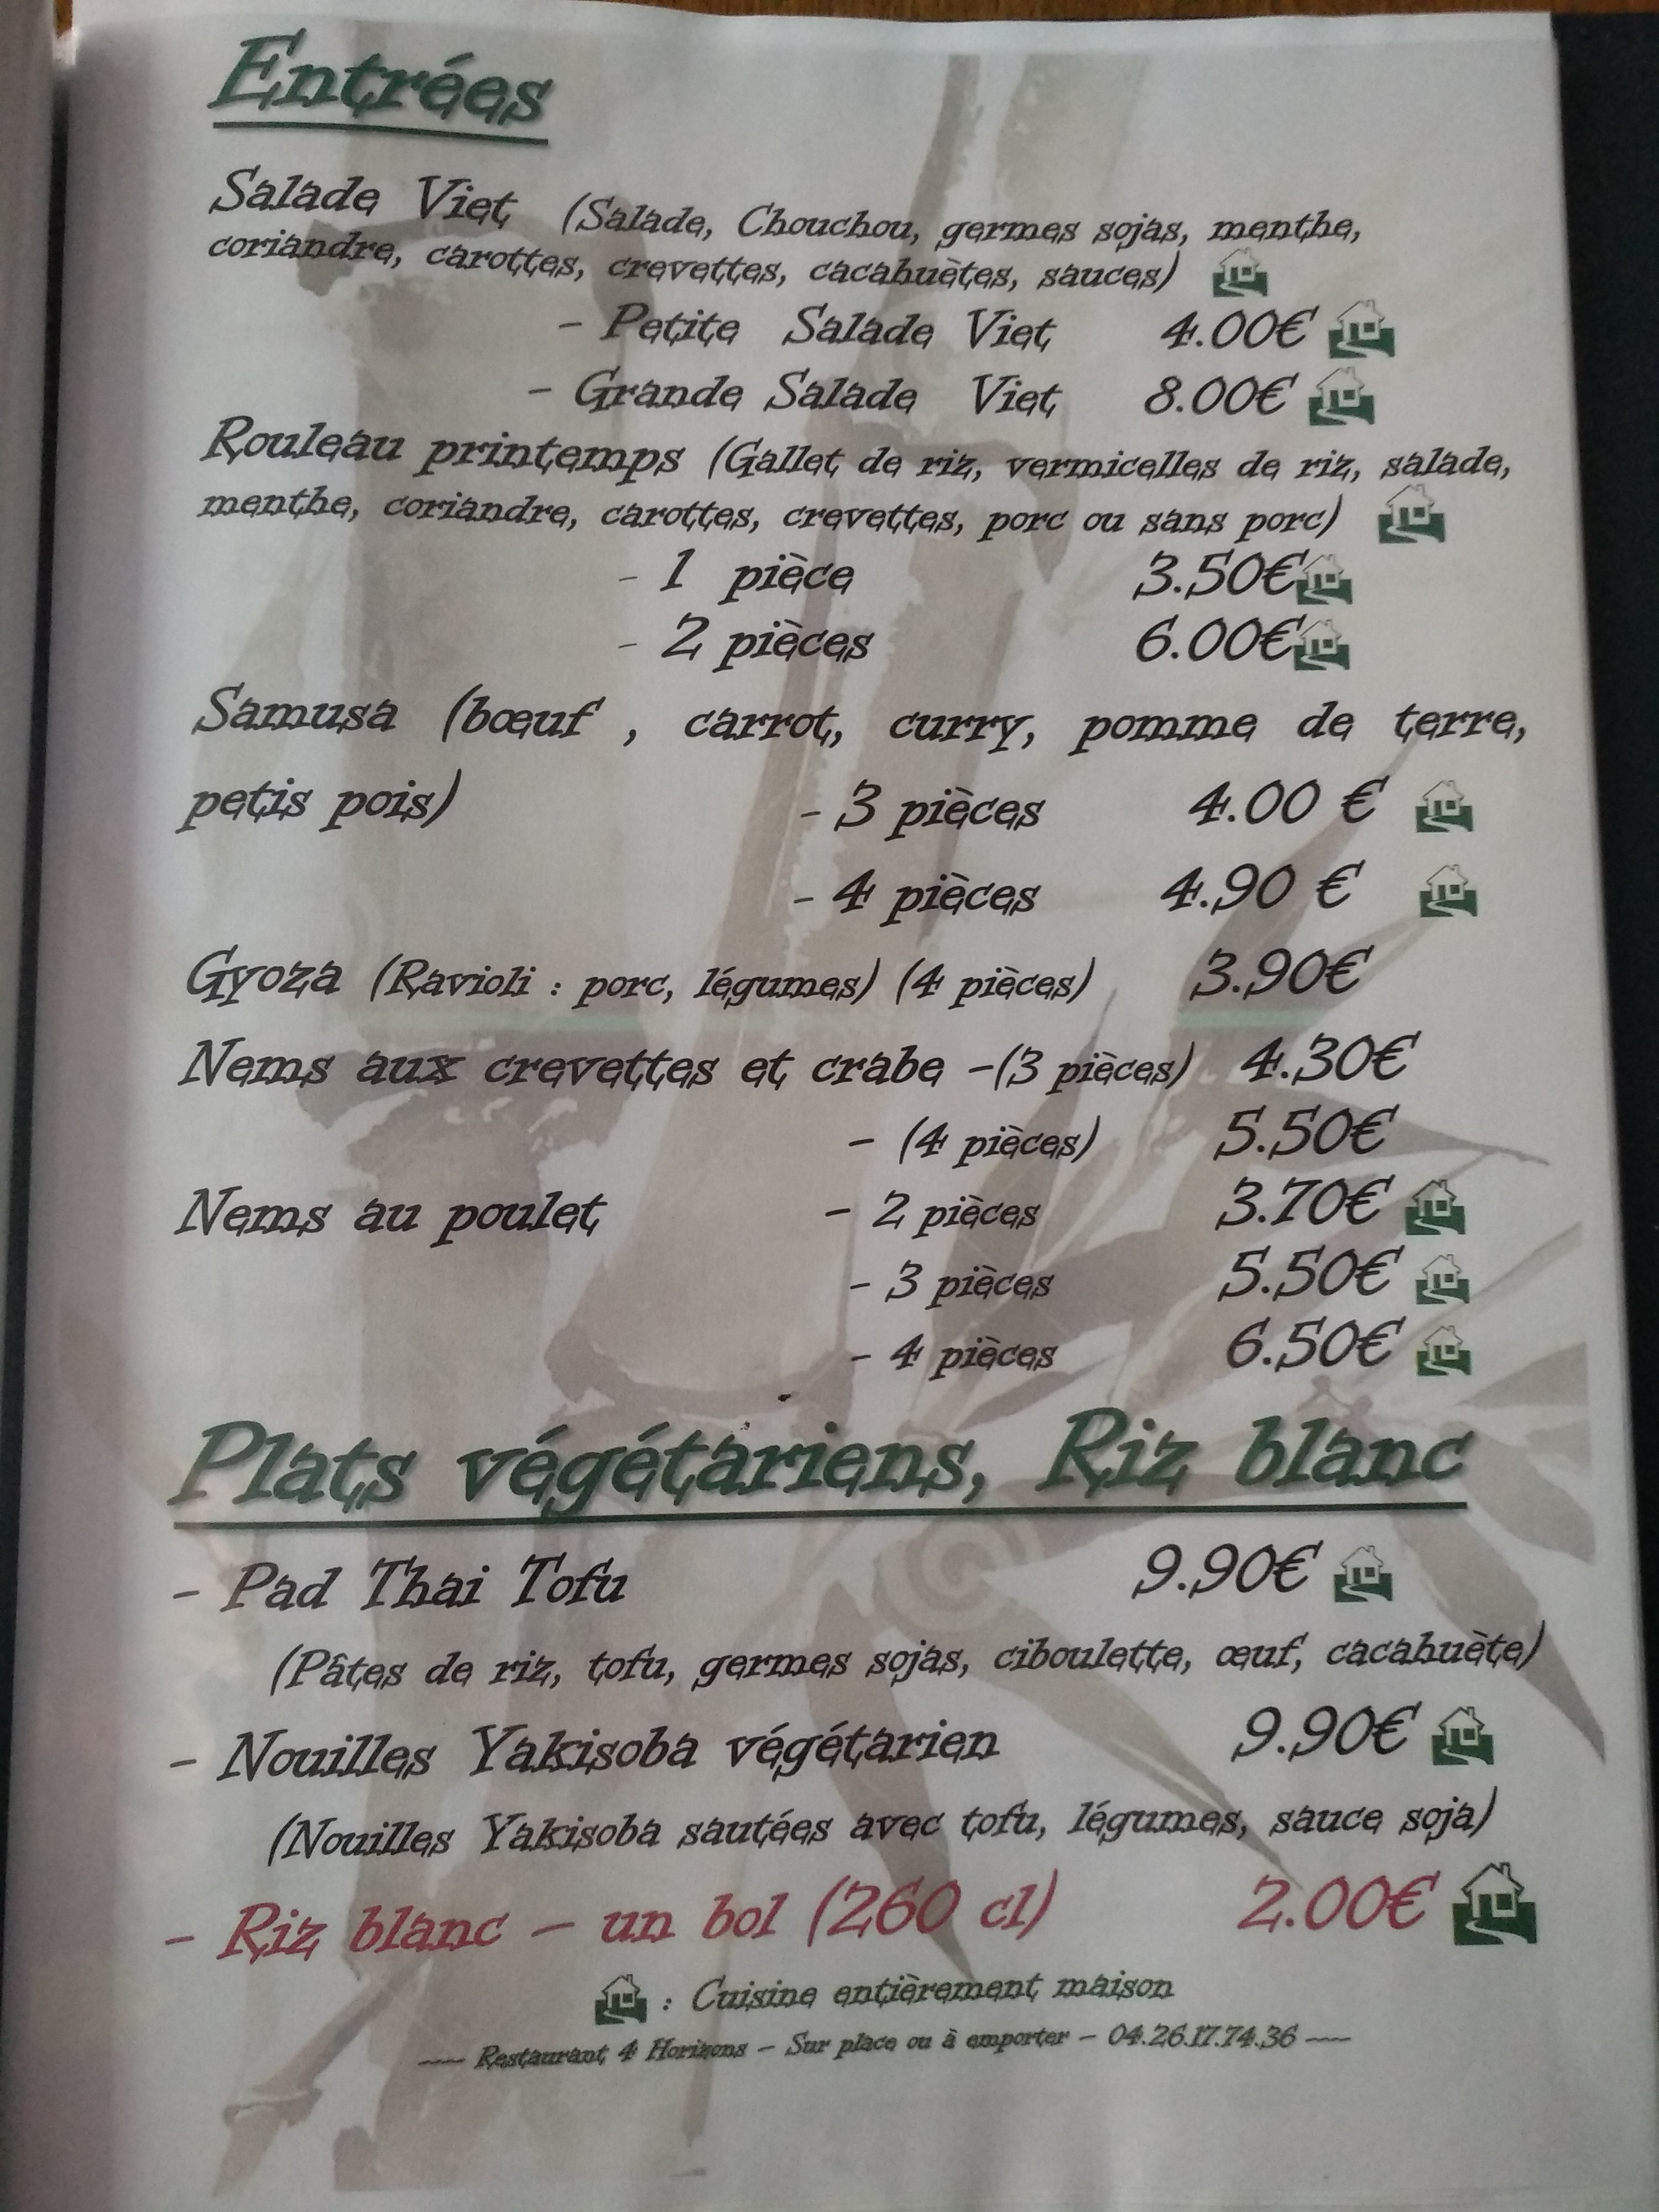 Entrées
Salade Viet (Salade, Chouchou, germes sojas, menthe,
coriandre, carottes, crevettes, cacahuètes, sauces)
- Petite Salade Viet 4.00€
- Grande Salade Viet 8.00€
Rouleau printemps (Gallet de riz, vermicelles de riz, salade,
menthe, coriandre, carottes, crevettes, porc ou sans porc)
- 1 pièce 3.50€
- 2 pièces 6.00€
Samusa (bœuf , carrot, curry, pomme de terre,
petis pois) - 3 pièces 4.00 €
- 4 pièces 4.90 €
Gyoza (Ravioli : porc, légumes) (4 pièces) 3.90€
Nems aux crevettes et crabe -(3 pièces) 4.30€
- (4 pièces) 5.50€
Nems au poulet - 2 pièces 3.70€
- 3 pièces 5.50€
- 4 pièces 6.50€
Plats végétariens, Riz blanc
- Pad Thai Tofu 9.90€
(Pâtes de riz, tofu, germes sojas, ciboulette, œuf, cacahuète)
- Nouilles Yakisoba végétarien 9.90€
(Nouilles Yakisoba sautées avec tofu, légumes, sauce soja)
- Riz blanc – un bol (260 cl) 2.00€
: Cuisine entièrement maison
---- Restaurant 4 Horizons – Sur place ou à emporter – 04.26.17.74.36 ----